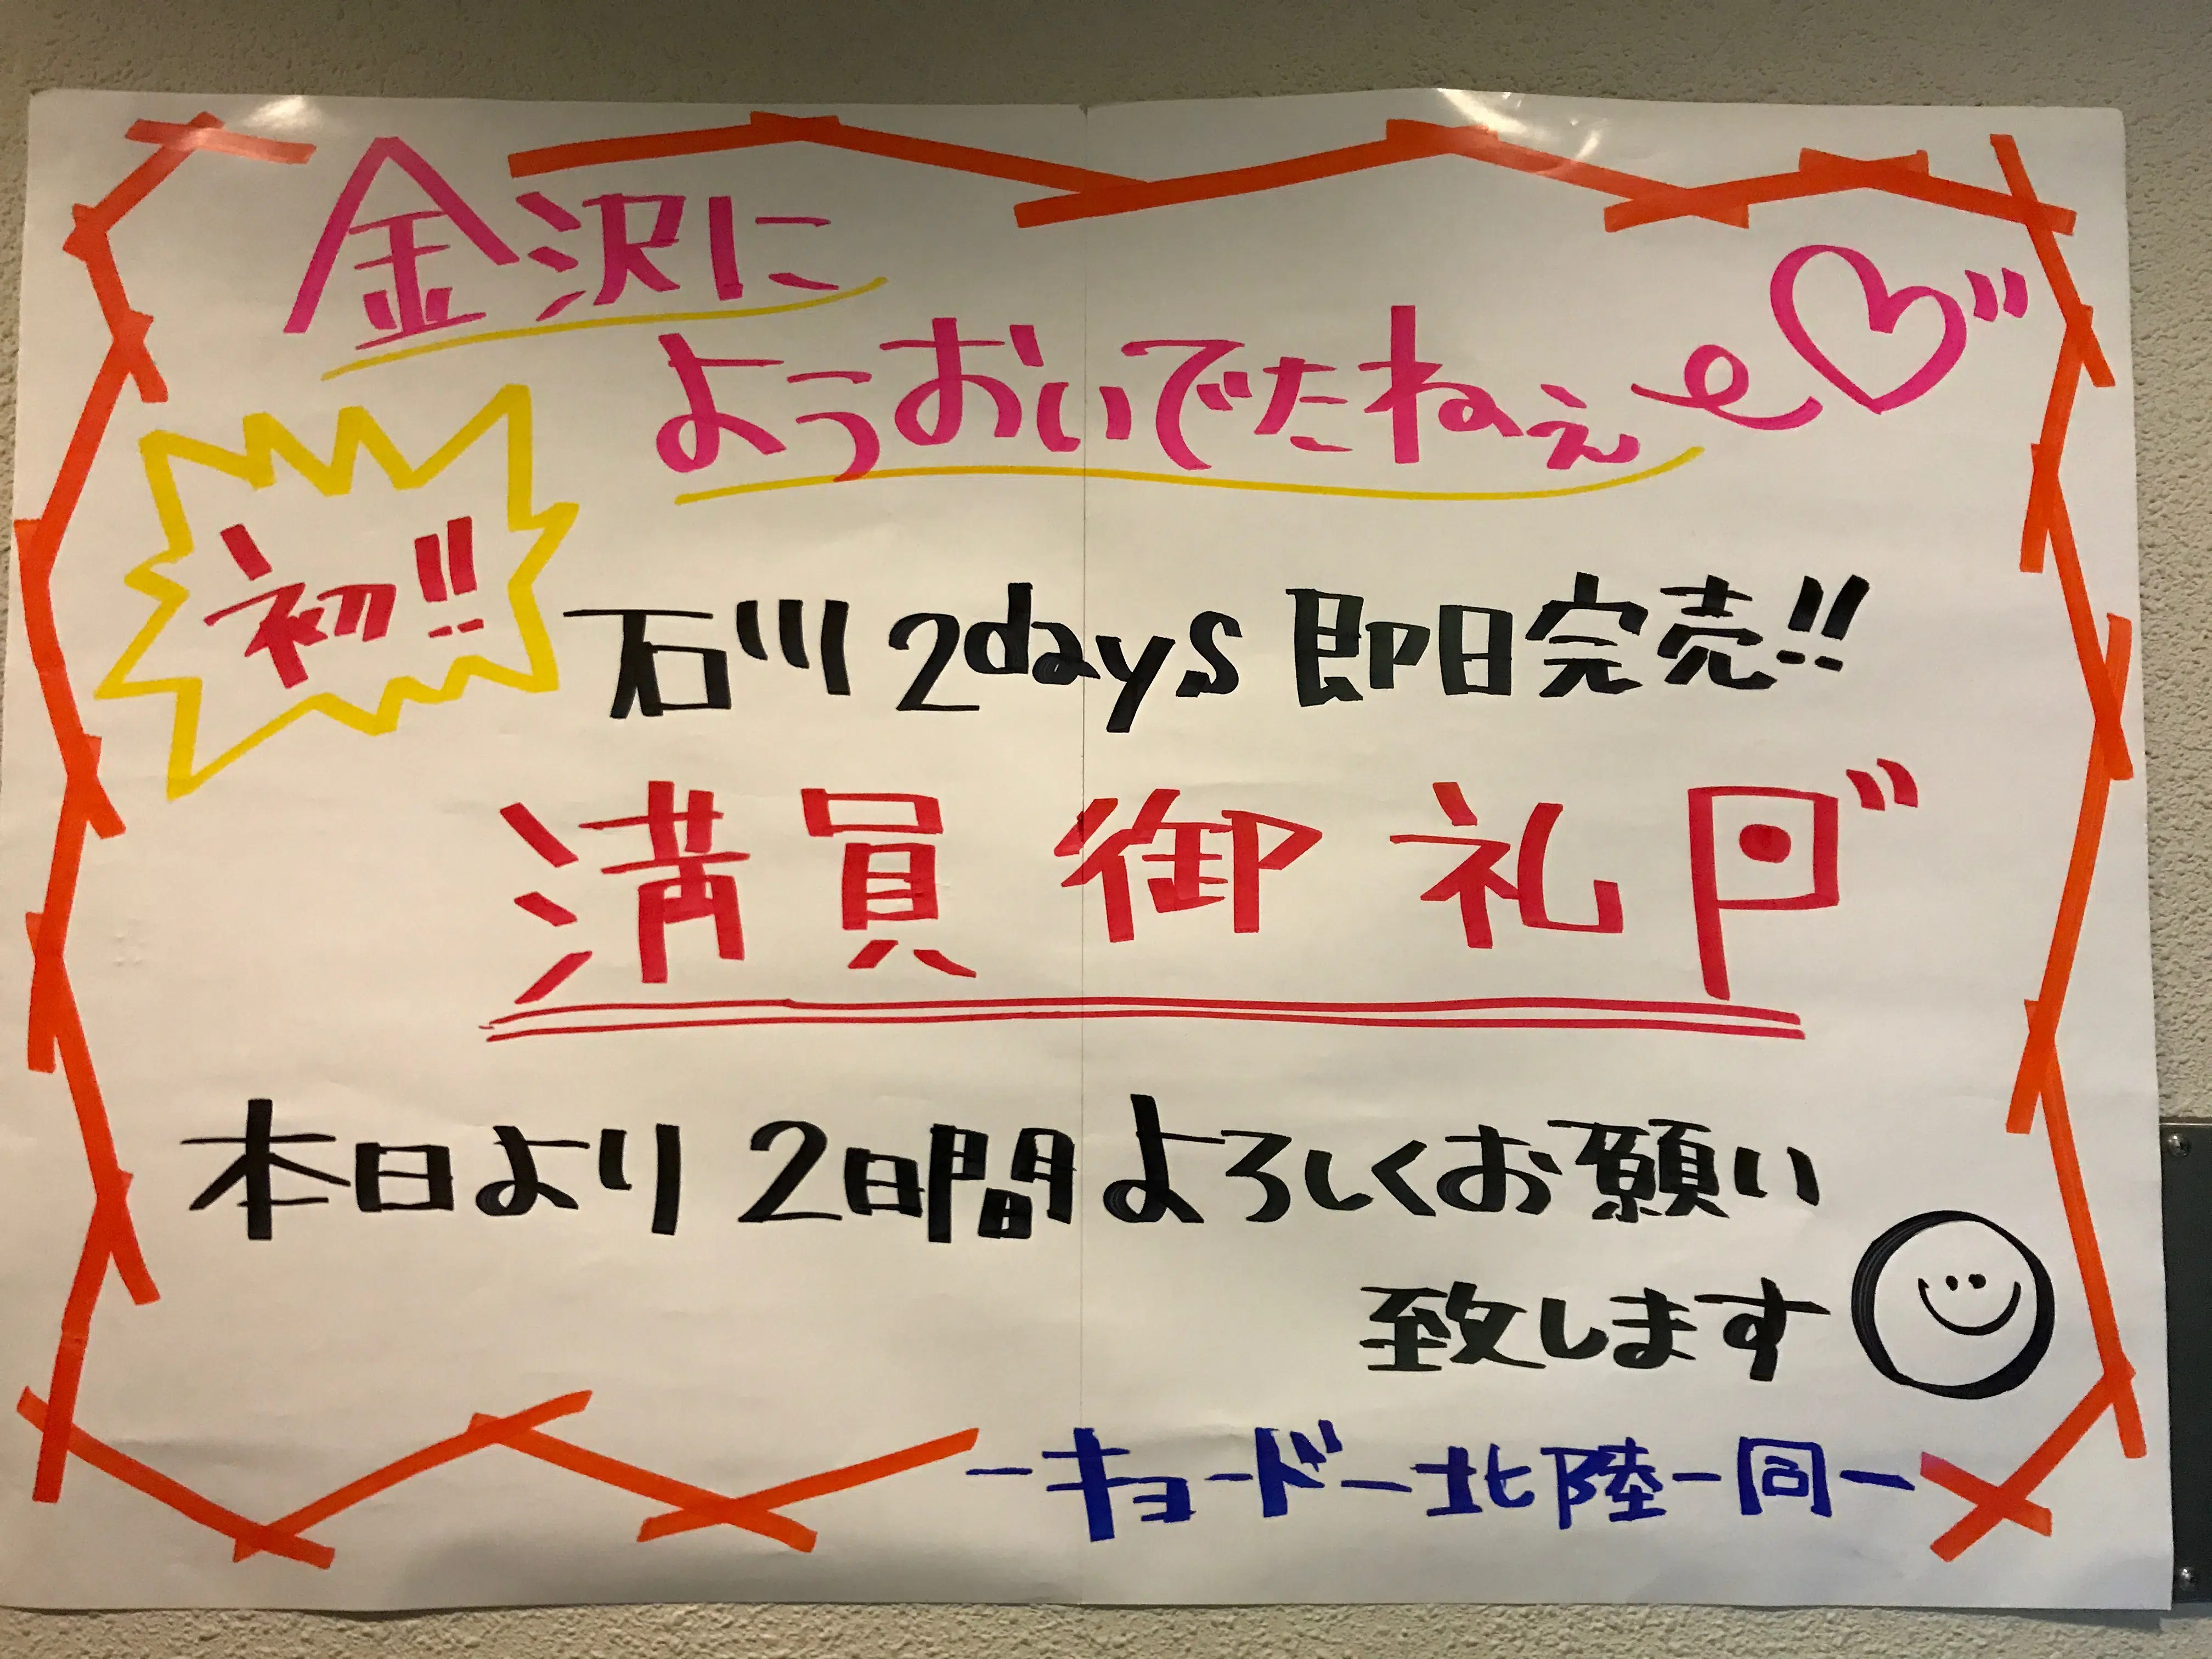 金沢に
ようおいでたねぇ
初!!
石川 2days 即日完売!!
満員御礼
本日より 2日間 よろしくお願い
致します
ーキョードー北陸一同ー